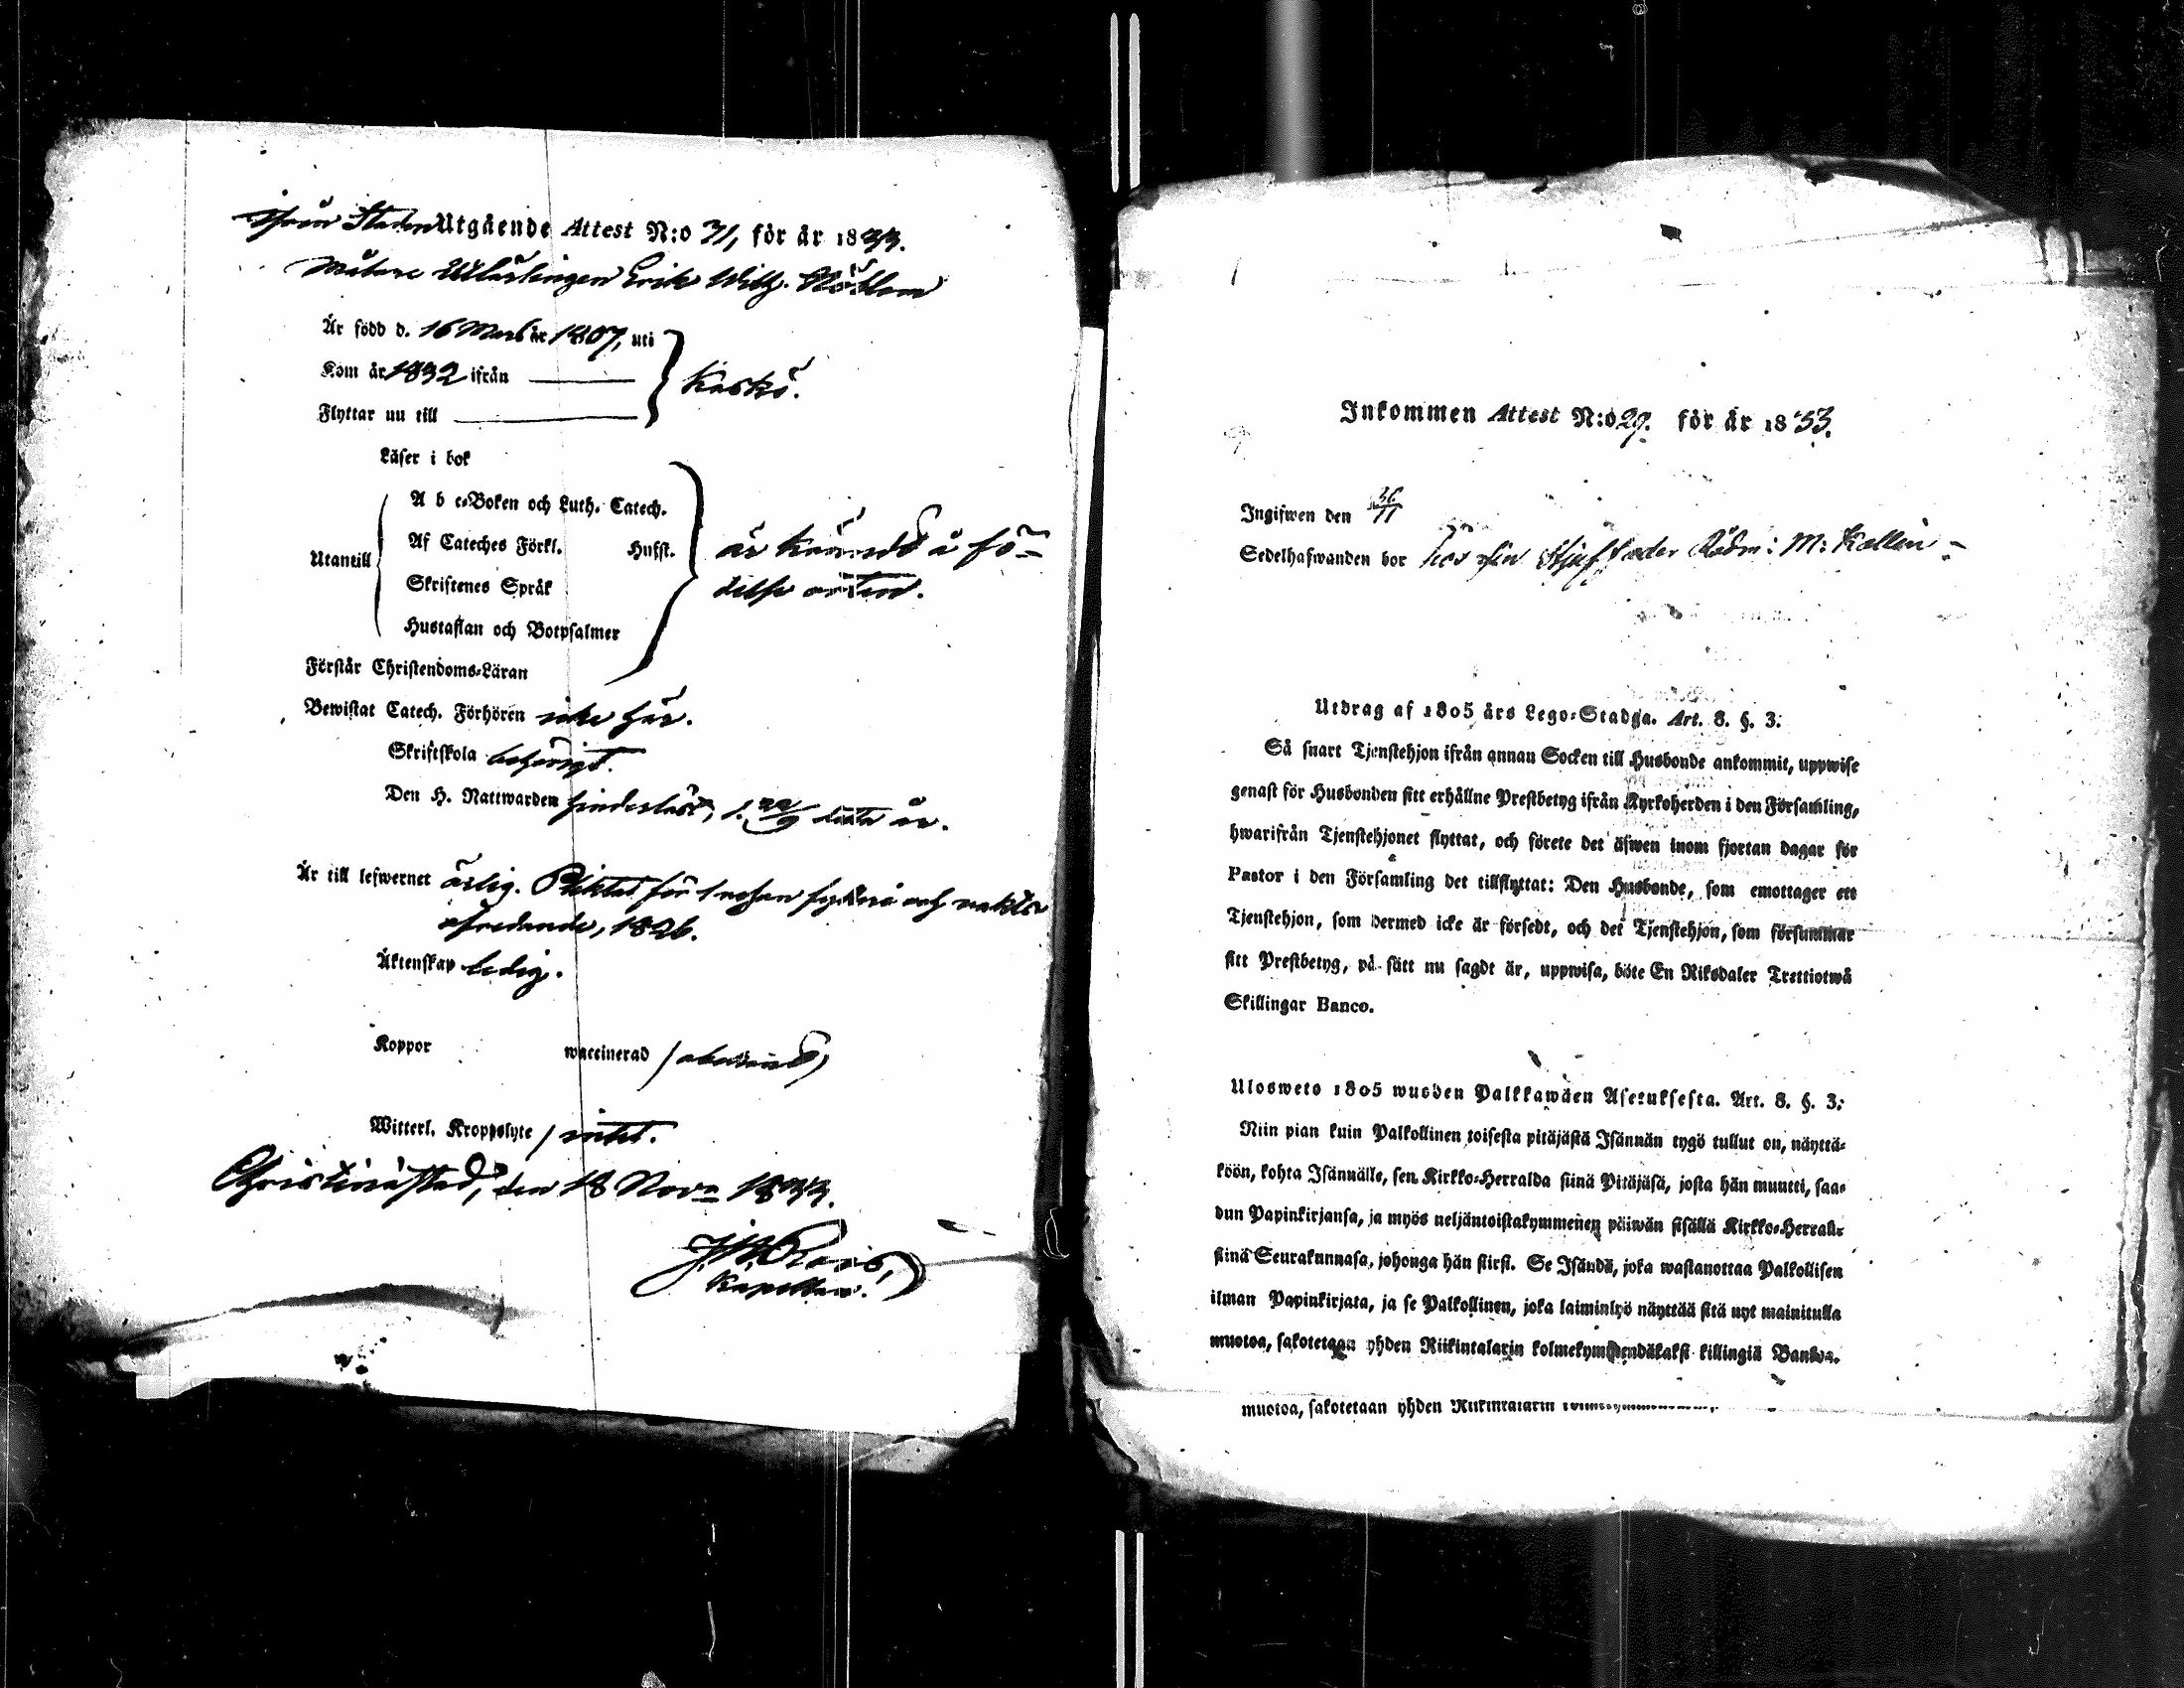 ifrån Staden Utgående Attest N:o 31, för år 1833.
Målare Utlärlingen Erik Wilh.
Är född d. 16 Mars år 1807, uti
Kom år 1832 ifrån
Kaskö.
Flyttar nu till
Läser i bok
A b c-Boken och Luth. Catech.
Af Cateches Förkl. Hufst.
Utantill
är kändt å fö-
delse orten.
Skriftenes Språk
Hustaflan och Botpsalmer
Förstår Christendoms-Läran
Bewistat Catech. Förhören icke här.
Skriftskola behörigt.
Den H. Nattwarden hinderlöst, d. 22/9 detta år.
Är till lefwernet ärlig. Pliktat för 1 resan fylleri och
1826.
Äktenskap ledig.
Koppor waccinerad /
Witterl. Kroppslyte / intet.
Christinæstad, den 18 Nov. 1833.
Kapellan.
Inkommen Attest N:o 29. för år 1833.
Ingifwen den 30/11
Sedelhafwanden bor hos sin Stjuffader Rådm: M: Kallin
Utdrag af 1805 års Lego-Stadga. Art. 8. §. 3.
Så snart Tjenstehjon ifrån annan Socken till Husbonde ankommit, uppwise
genast för Husbonden sitt erhållne Prestbetyg ifrån Kyrkoherden i den Församling,
hwarifrån Tjenstehjonet flyttat, och förete det äfwen inom fjortan dagar för
Pastor i den Församling det tillflyttat: Den Husbonde, som emottager ett
Tjenstehjon, som dermed icke är försedt, och det Tjenstehjon, som försummar
sitt Prestbetyg, på sätt nu sagdt är, uppwisa, böte En Riksdaler Trettiotwå
Skillingar Banco.
Ulosweto 1805 wuoden Palkkawäen Asetuksesta. Art. 8. §. 3:
Niin pian kuin Palkollinen toisesta pitäjästä Isännän tygö tullut on, näyttä-
köön, kohta Isännälle, sen Kirkko-Herralda siinä Pitäjäsä, josta hän muutti, saa-
dun Papinkirjansa, ja myös neljäntoistakymmenen päiwän sisällä Kirkko-Herralle
siinä Seurakunnasa, johonga hän siirst. Se Isändä, joka wastanottaa Palkollisen
ilman Papinkirjata, ja se Palkollinen, joka laiminlyö näyttää sitä nyt mainitulla
muotoa, sakotetaan yhden Riikintalarin kolmekymmendäkaksi killingiä Bankoa.
muotoa, sakotetaan yhden Riikintalarin